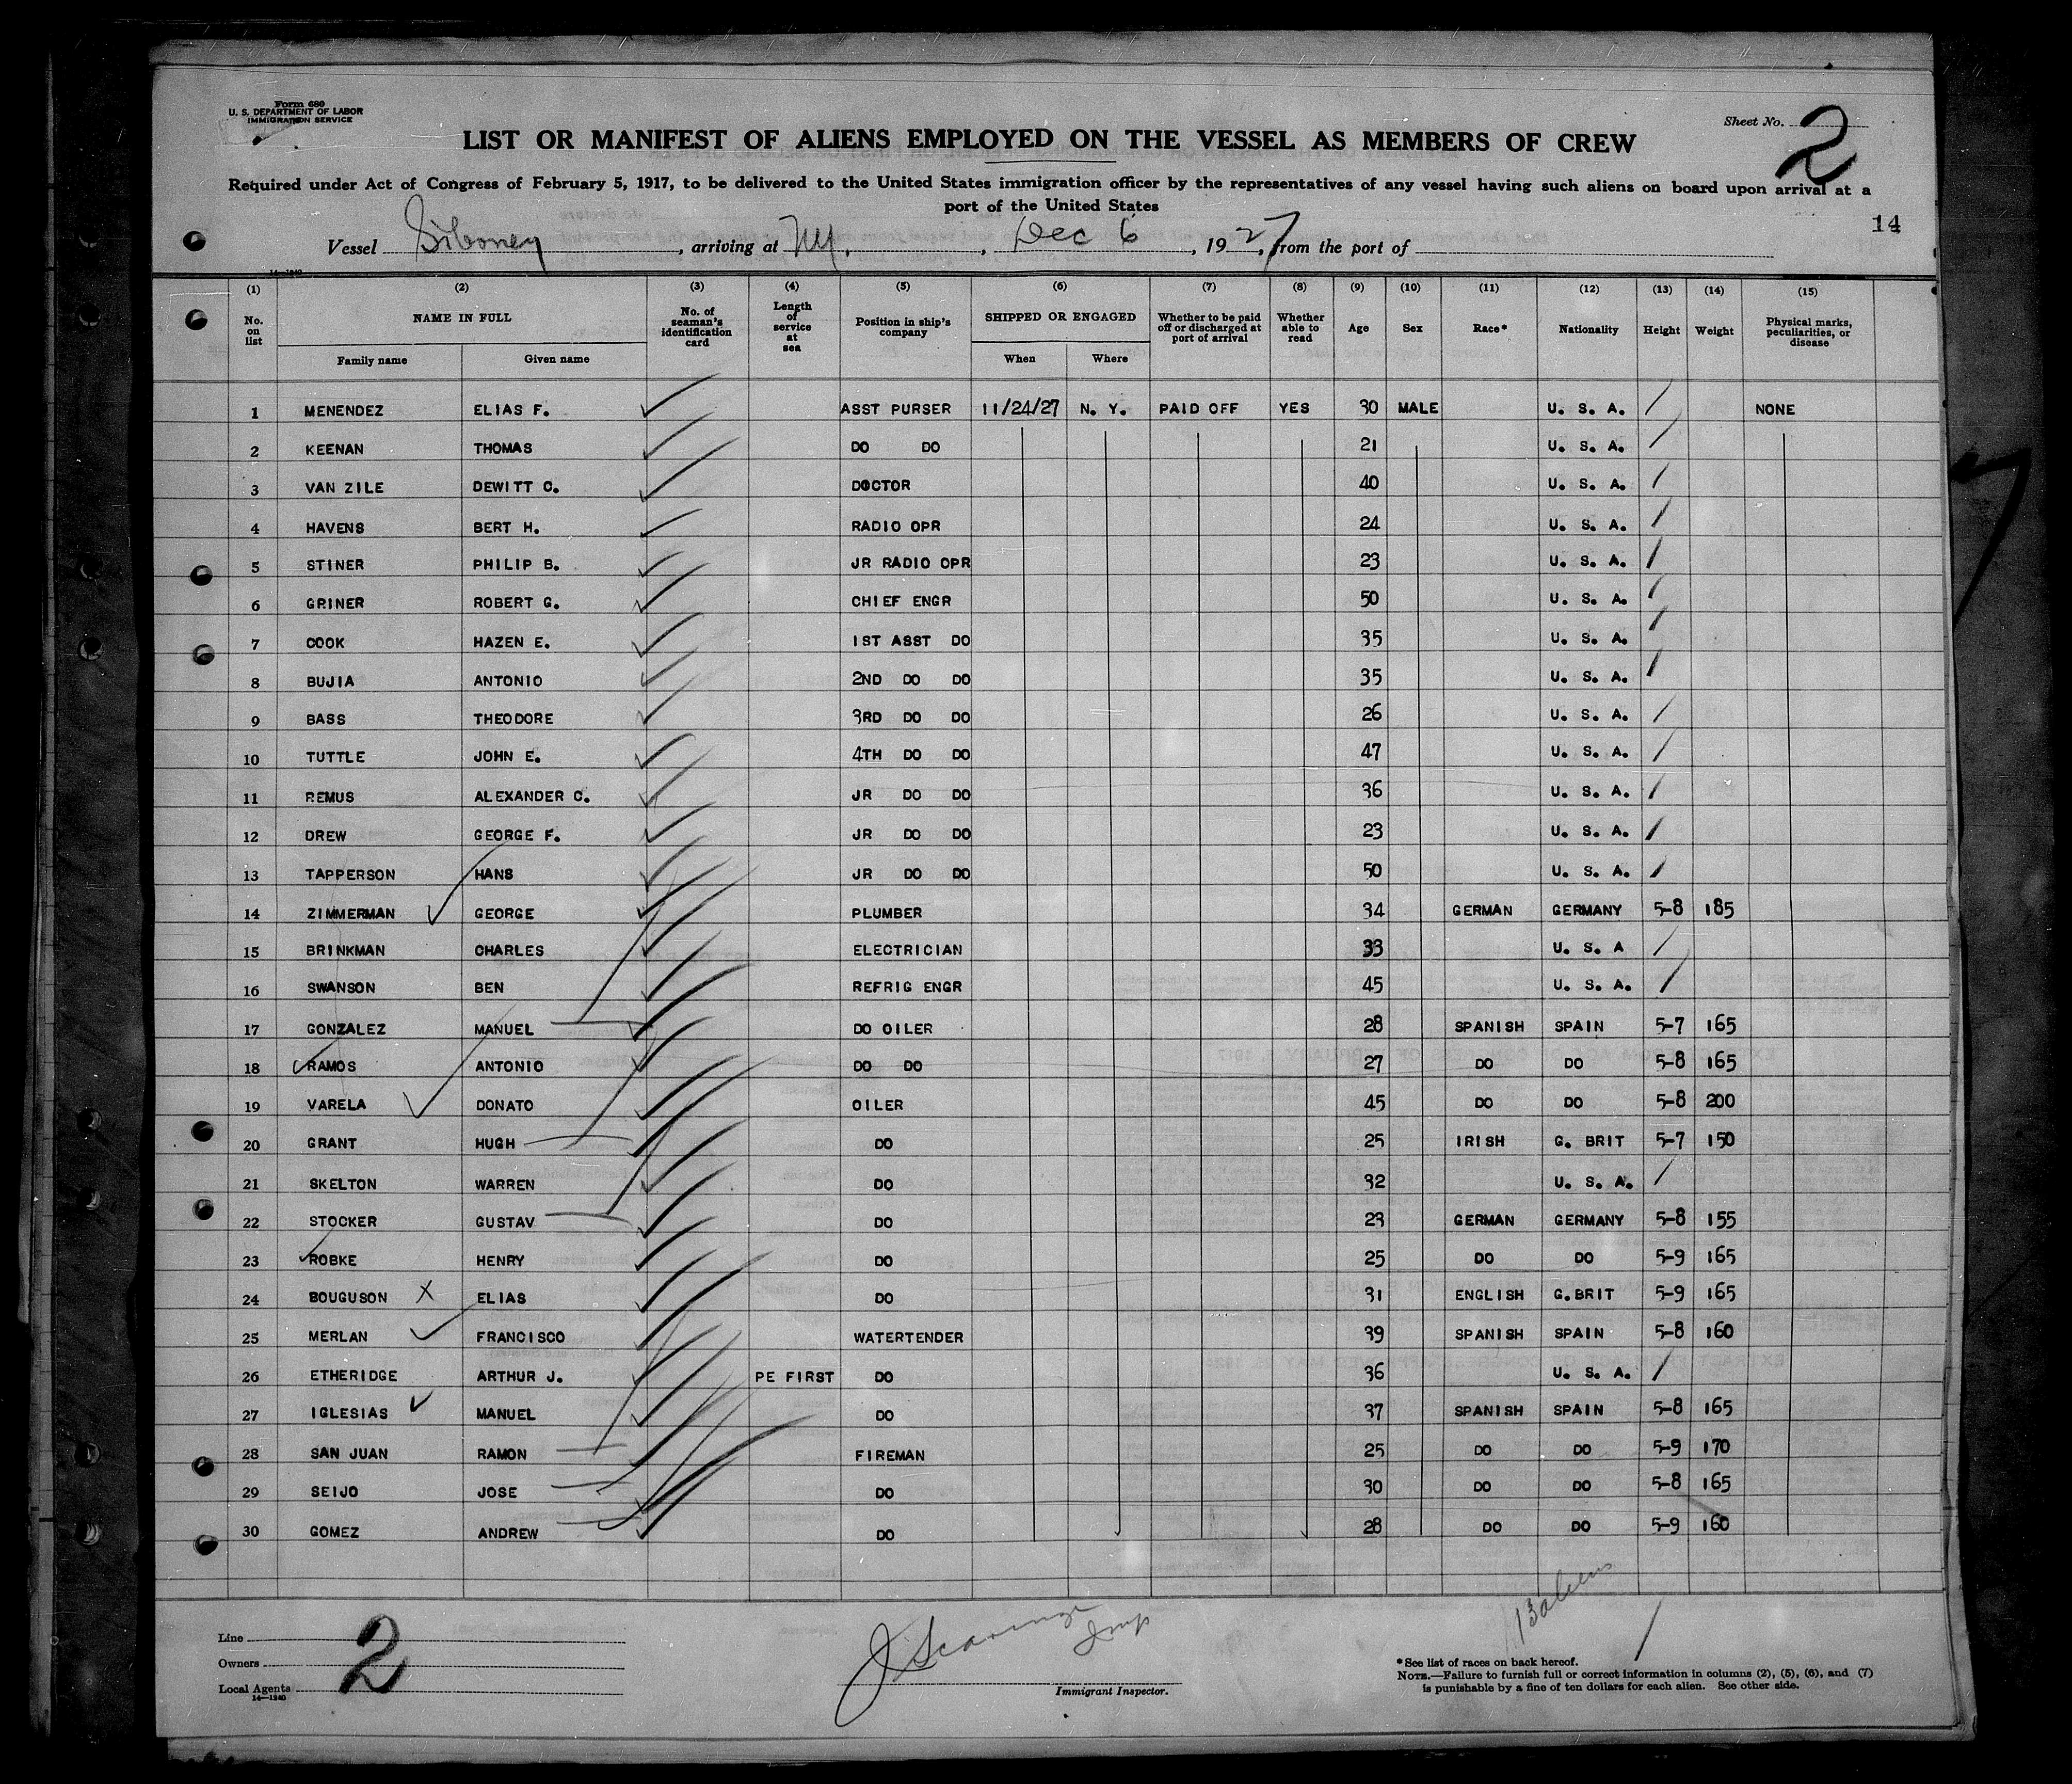 Form 680
U. S. DEPARTMENT OF LABOR
IMMIGRATION SERVICE
Sheet No. 2
LIST OR MANIFEST OF ALIENS EMPLOYED ON THE VESSEL AS MEMBERS OF CREW
Required under Act of Congress of February 5, 1917, to be delivered to the United States immigration officer by the representatives of any vessel having such aliens on board upon arrival at a
port of the United States
14
Vessel Siboney, arriving at NY., Dec 6, 1927, from the port of
14—1240
(1) (2) (3) (4) (5) (6) (7) (8) (9) (10) (11) (12) (13) (14) (15)
No. on list NAME IN FULL Family name Given name No. of seaman's identification card Length of service at sea Position in ship's company SHIPPED OR ENGAGED When Where Whether to be paid off or discharged at port of arrival Whether able to read Age Sex Race* Nationality Height Weight Physical marks, peculiarities, or disease
1 MENENDEZ ELIAS F. ASST PURSER 11/24/27 N. Y. PAID OFF YES 30 MALE U. S. A. NONE
2 KEENAN THOMAS DO DO 21 U. S. A.
3 VAN ZILE DEWITT C. DOCTOR 40 U. S. A.
4 HAVENS BERT H. RADIO OPR 24 U. S. A.
5 STINER PHILIP B. JR RADIO OPR 23 U. S. A.
6 GRINER ROBERT G. CHIEF ENGR 50 U. S. A.
7 COOK HAZEN E. 1ST ASST DO 35 U. S. A.
8 BUJIA ANTONIO 2ND DO DO 35 U. S. A.
9 BASS THEODORE 3RD DO DO 26 U. S. A.
10 TUTTLE JOHN E. 4TH DO DO 47 U. S. A.
11 REMUS ALEXANDER C. JR DO DO 36 U. S. A.
12 DREW GEORGE F. JR DO DO 23 U. S. A.
13 TAPPERSON HANS JR DO DO 50 U. S. A.
14 ZIMMERMAN GEORGE PLUMBER 34 GERMAN GERMANY 5-8 185
15 BRINKMAN CHARLES ELECTRICIAN 33 U. S. A
16 SWANSON BEN REFRIG ENGR 45 U. S. A.
17 GONZALEZ MANUEL DO OILER 28 SPANISH SPAIN 5-7 165
18 RAMOS ANTONIO DO DO 27 DO DO 5-8 165
19 VARELA DONATO OILER 45 DO DO 5-8 200
20 GRANT HUGH DO 25 IRISH G. BRIT 5-7 150
21 SKELTON WARREN DO 32 U. S. A.
22 STOCKER GUSTAV DO 23 GERMAN GERMANY 5-8 155
23 ROBKE HENRY DO 25 DO DO 5-9 165
24 BOUGUSON X ELIAS DO 31 ENGLISH G.BRIT 5-9 165
25 MERLAN FRANCISCO WATERTENDER 39 SPANISH SPAIN 5-8 160
26 ETHERIDGE ARTHUR J. PE FIRST DO 36 U. S. A.
27 IGLESIAS MANUEL DO 37 SPANISH SPAIN 5-8 165
28 SAN JUAN RAMON FIREMAN 25 DO DO 5-9 170
29 SEIJO JOSE DO 30 DO DO 5-8 165
30 GOMEZ ANDREW DO 28 DO DO 5-9 160
13 aliens
Line
Owners
Local Agents
14—1240
2
Immigrant Inspector.
*See list of races on back hereof.
NOTE.—Failure to furnish full or correct information in columns (2), (5), (6), and (7)
is punishable by a fine of ten dollars for each alien. See other side.